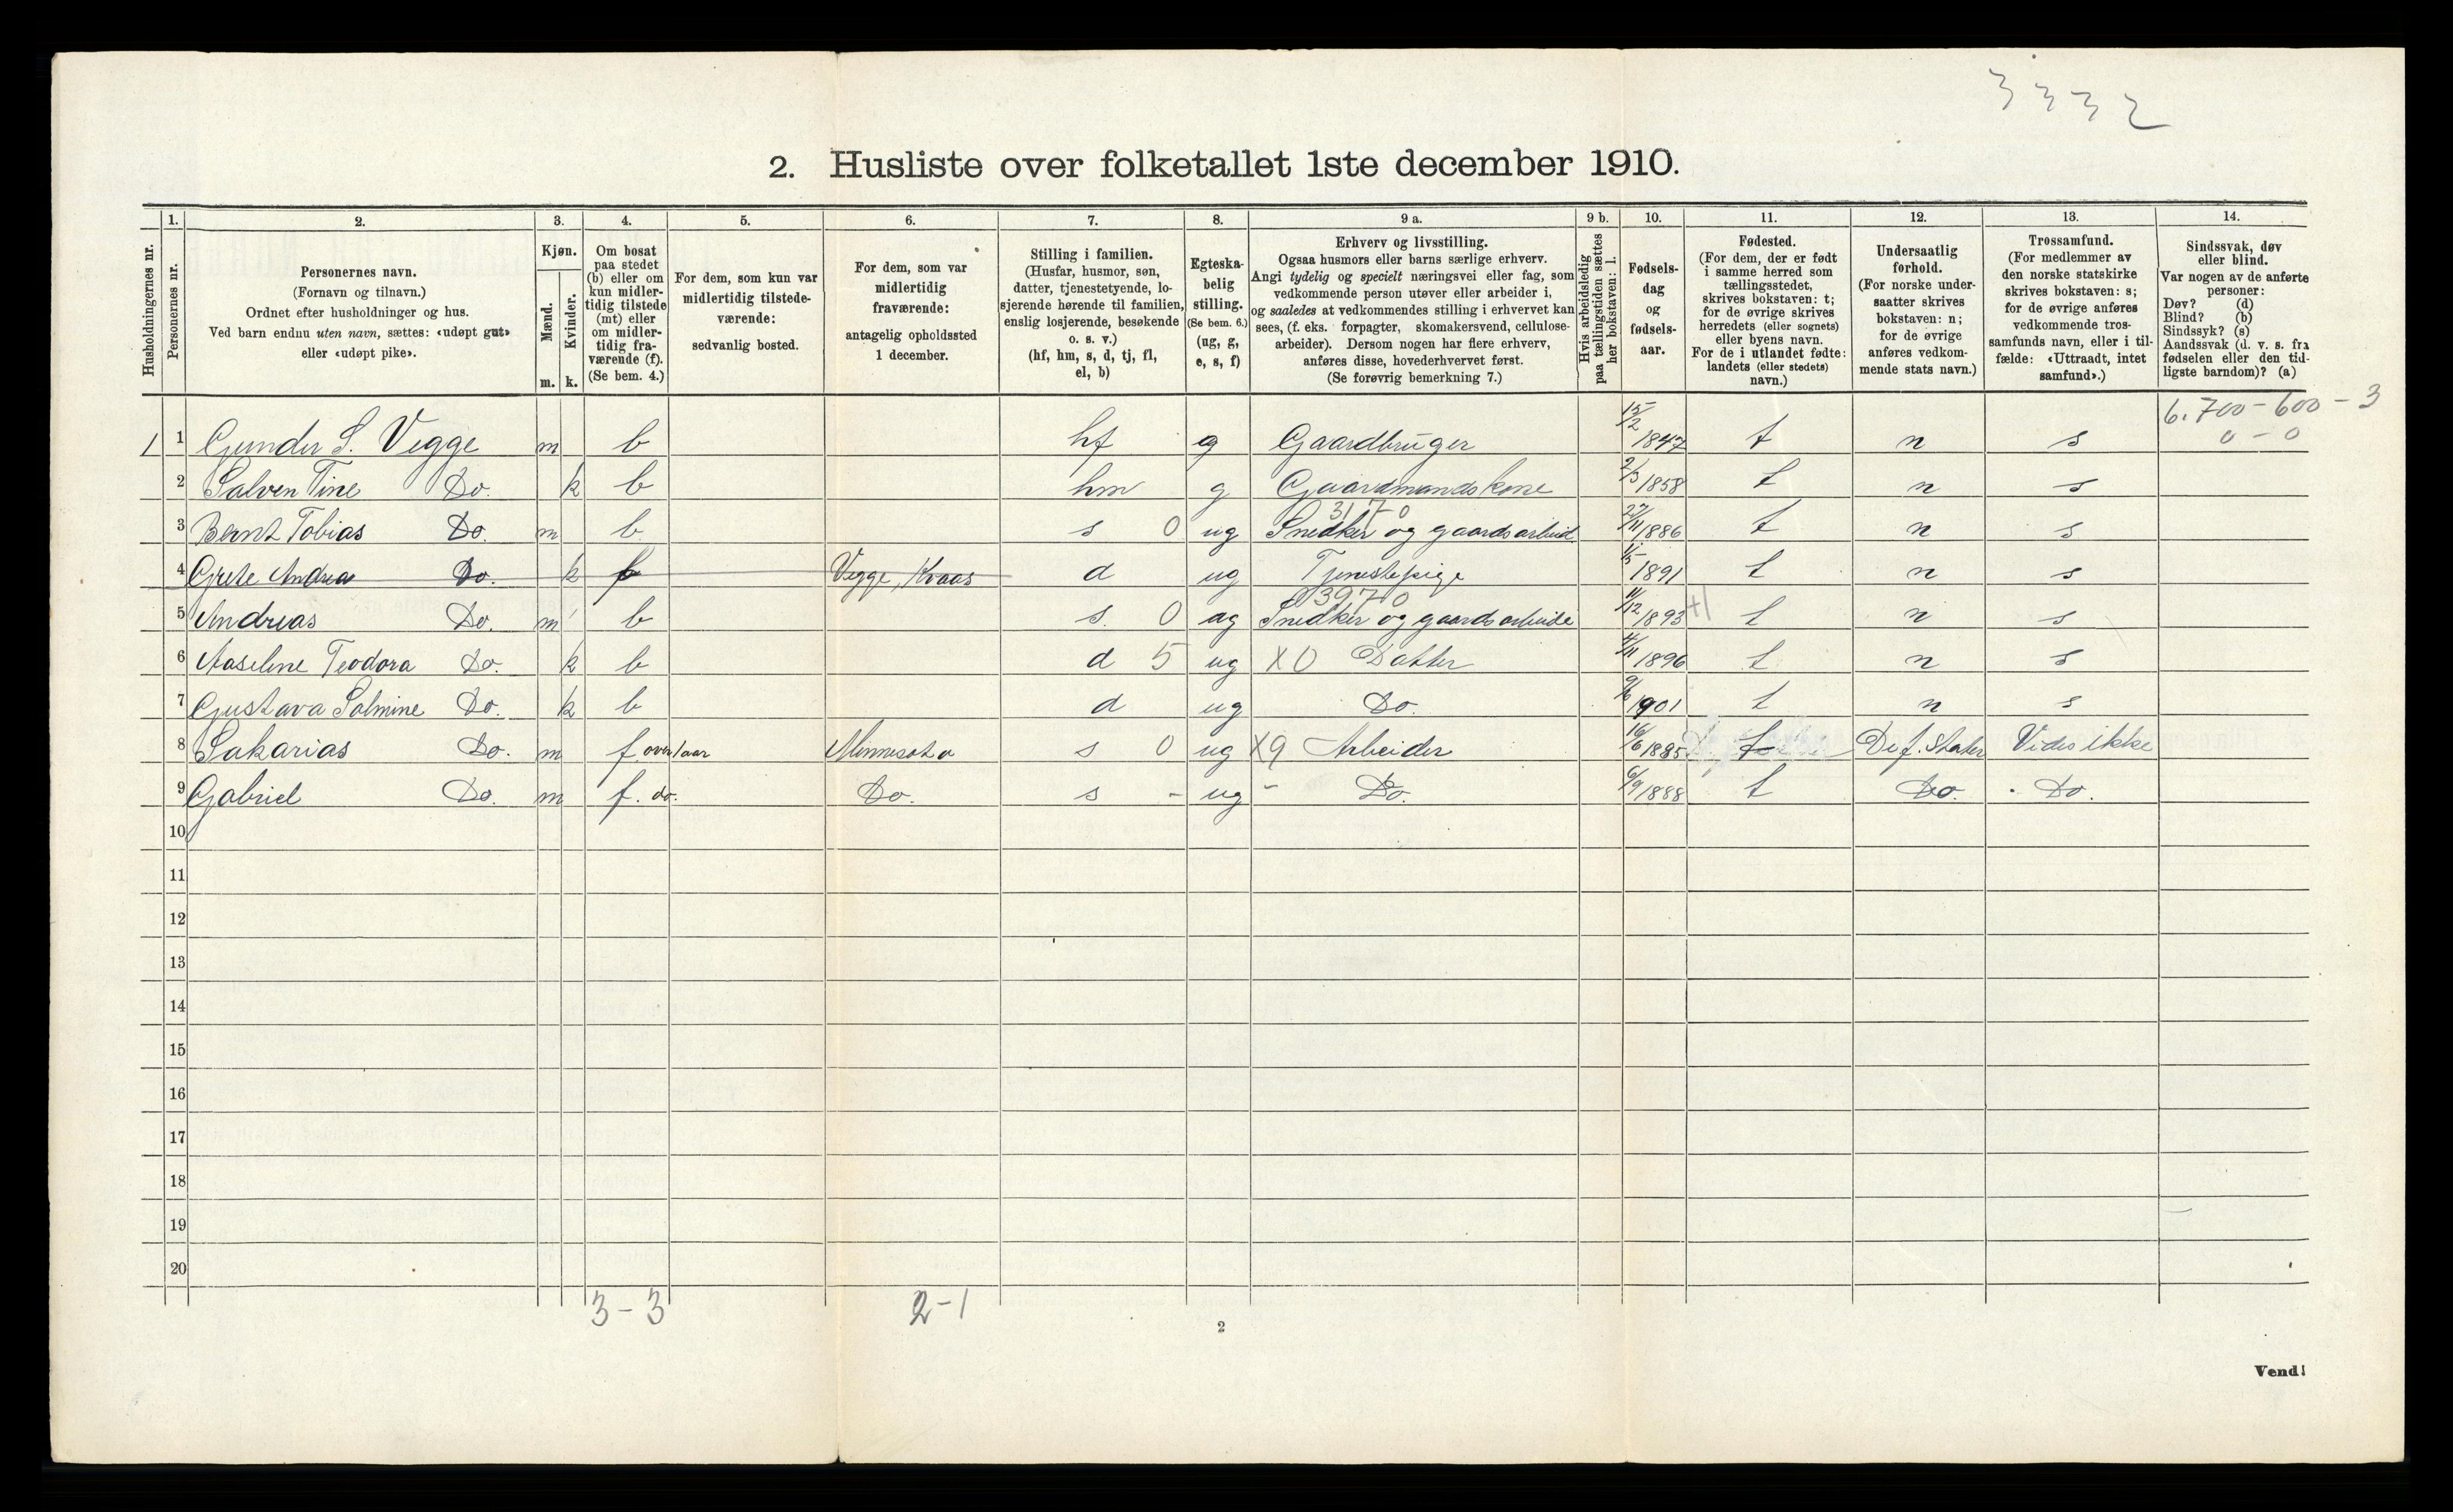 3 3 3 2
2. Husliste over folketallet 1ste december 1910.
Husholdningernes nr.
1.
Personernes nr.
2.
Personernes navn.
(Fornavn og tilnavn.)
Ordnet efter husholdninger og hus.
Ved barn endnu uten navn, sættes: «udøpt gut»
eller «udøpt pike».
3.
Kjøn.
Mænd.
Kvinder.
m. k.
4.
Om bosat
paa stedet
(b) eller om
kun midler-
tidig tilstede
(mt) eller
om midler-
tidig fra-
værende (f).
(Se bem. 4.)
5.
For dem, som kun var
midlertidig tilstede-
værende:
sedvanlig bosted.
6.
For dem, som var
midlertidig
fraværende:
antagelig opholdssted
1 december.
7.
Stilling i familien.
(Husfar, husmor, søn,
datter, tjenestetyende, lo-
sjerende hørende til familien,
enslig losjerende, besøkende
o. s. v.)
(hf, hm, s, d, tj, fl,
el, b)
8.
Egteska-
belig
stilling.
(Se bem. 6.)
(ug, g,
e, s, f)
9 a.
Erhverv og livsstilling.
Ogsaa husmors eller barns særlige erhverv.
Angi tydelig og specielt næringsvei eller fag, som
vedkommende person utøver eller arbeider i,
og saaledes at vedkommendes stilling i erhvervet kan
sees, (f. eks. forpagter, skomakersvend, cellulose-
arbeider). Dersom nogen har flere erhverv,
anføres disse, hovederhvervet først.
(Se forøvrig bemerkning 7.)
9 b.
Hvis arbeidsledig
paa tællingstiden sættes
her bokstaven: l.
10.
Fødsels-
dag
og
fødsels-
aar.
11.
Fødested.
(For dem, der er født
i samme herred som
tællingsstedet,
skrives bokstaven: t;
for de øvrige skrives
herredets (eller sognets)
eller byens navn.
For de i utlandet fødte:
landets (eller stedets)
navn.)
12.
Undersaatlig
forhold.
(For norske under-
saatter skrives
bokstaven: n;
for de øvrige
anføres vedkom-
mende stats navn.)
13.
Trossamfund.
(For medlemmer av
den norske statskirke
skrives bokstaven: s;
for de øvrige anføres
vedkommende tros-
samfunds navn, eller i til-
fælde: «Uttraadt, intet
samfund».)
14.
Sindssvak, døv
eller blind.
Var nogen av de anførte
personer:
Døv? (d)
Blind? (b)
Sindssyk? (s)
Aandssvak (d. v. s. fra
fødselen eller den tid-
ligste barndom)? (a)
6.700 - 600 - 3
0 - 0
1 1 Gunder S. Vegge m b hf g Gaardbruger 15/2 1847 t n s
2 Salven Tine Do. k b hm g Gaardmandskone 2/3 1858 t n s
3170
3 Bernt Tobias Do. m b s 0 ug Snedker og gaardsarbeid 27/11 1886 t n s
4 Grete Andrea Do. k f Vegge, Kvaas d ug Tjenestepige 1/5 1891 t n s
3970
5 Andreas Do. m b s. 0 ug Snedker og gaardsarbeide 11/12 1893 +1 t n s
6 Aaseline Teodora Do. k b d 5 ug X0 Datter 4/11 1896 t n s
7 Gustava Salmine Do. k b d ug Do. 9/6 1901 t n s
8 Sakarias Do. m f over 1 aar Minnesota s 0 ug X9 Arbeider 16/6 1885 t De f. Stater Vides ikke
9 Gabriel Do. m f. do. Do. s - ug - Do. 6/9 1888 t Do. Do.
10
11
12
13
14
15
16
17
18
19
20
3 - 3 2 - 1
2
Vend!